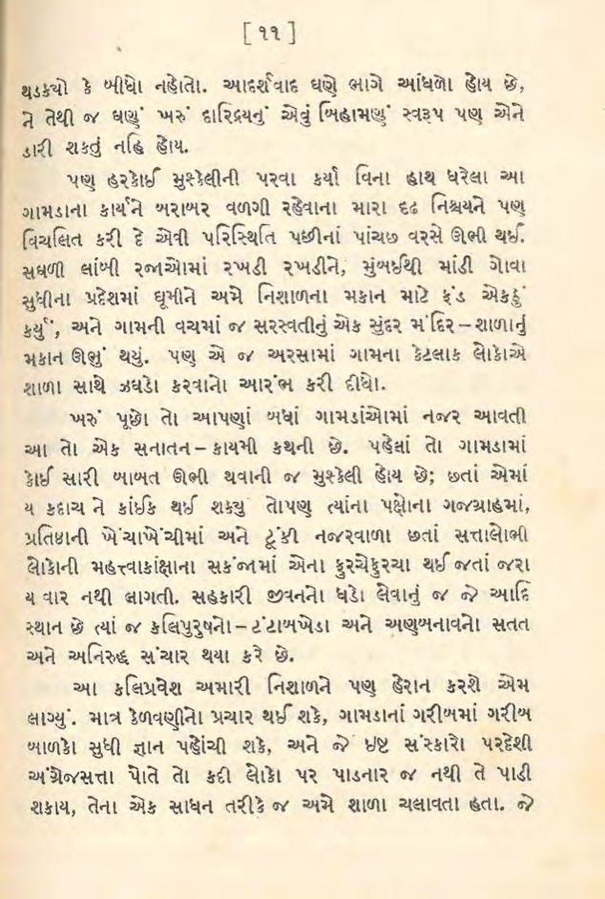 [ ૧૧ ]
થડક્યો કે બીધો નહોતો. આદર્શવાદ ઘણે ભાગે આંધળો હોય છે,
ને તેથી જ ઘણું ખરું દારિદ્રયનું એવું બિહામણું સ્વરૂપ પણ એને
ડારી શકતું નહિ હોય.
પણ હરકોઈ મુશ્કેલીની પરવા કર્યા વિના હાથ ધરેલા આ
ગામડાના કાર્યને બરાબર વળગી રહેવાના મારા દૃઢ નિશ્ચયને પણ
વિચલિત કરી દે એવી પરિસ્થિતિ પછીનાં પાંચછ વરસે ઊભી થઈ.
સઘળી લાંબી રજાઓમાં રખડી રખડીને, મુંબઈથી માંડી ગોવા
સુધીના પ્રદેશમાં ઘૂમીને અમે નિશાળના મકાન માટે ફંડ એકઠું
કર્યું, અને ગામની વચમાં જ સરસ્વતીનું એક સુંદર મંદિર – શાળાનું
મકાન ઊભું થયું. પણ એ જ અરસામાં ગામના કેટલાક લોકોએ
શાળા સાથે ઝઘડો કરવાનો આરંભ કરી દીધો.
ખરું પૂછો તો આપણાં બધાં ગામડાંઓમાં નજર આવતી
આ તો એક સનાતન – કાયમી કથની છે. પહેલાં તો ગામડામાં
કોઈ સારી બાબત ઊભી થવાની જ મુશ્કેલી હોય છે; છતાં એમાં
ય કદાચ ને કાંઈક થઈ શક્યું તોપણ ત્યાંના પક્ષોના ગજગ્રાહમાં,
પ્રતિષ્ઠાની ખેંચાખેંચીમાં અને ટૂંકી નજરવાળા છતાં સત્તાલોભી
લોકોની મહત્ત્વાકાંક્ષાના સકંજામાં એના કુરચેકુરચા થઈ જતાં જરા
ય વાર નથી લાગતી. સહકારી જીવનનો ઘડો લેવાનું જ જે આદિ
સ્થાન છે ત્યાં જ કલિપુરુષનો – ટંટાબખેડા અને અણબનાવનો સતત
અને અનિરુદ્ધ સંચાર થયા કરે છે.
આ કલિપ્રવેશ અમારી નિશાળને પણ હેરાન કરશે એમ
લાગ્યું. માત્ર કેળવણીનો પ્રચાર થઈ શકે, ગામડાનાં ગરીબમાં ગરીબ
બાળકો સુધી જ્ઞાન પહોંચી શકે, અને જે ઇષ્ટ સંસ્કારો પરદેશી
અંગ્રેજસત્તા પોતે તો કદી લોકો પર પાડનાર જ નથી તે પાડી
શકાય, તેના એક સાધન તરીકે જ અમે શાળા ચલાવતા હતા. જે